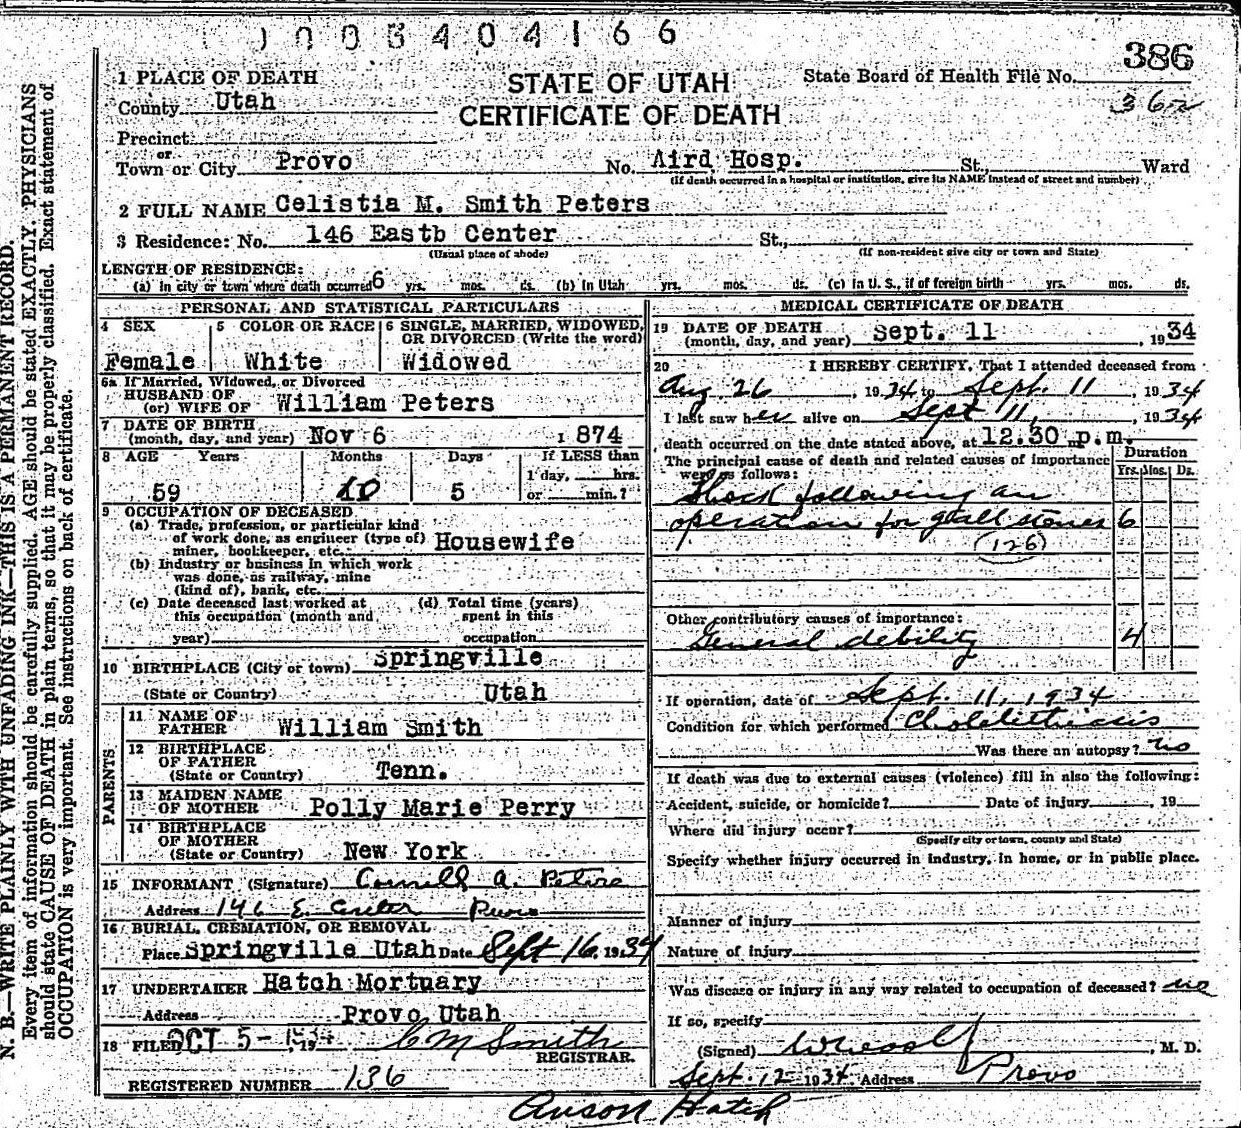 1003404166
386
State Board of Health File No.
362
STATE OF UTAH
CERTIFICATE OF DEATH
1 PLACE OF DEATH
County Utah
Precinct
or
Town or City Provo No. Aird Hosp. St., Ward
(If death occurred in a hospital or institution, give its NAME instead of street and number)
2 FULL NAME Celistia M. Smith Peters
3 Residence: No. 146 Eastb Center St.,
(Usual place of abode) (If non-resident give city or town and State)
LENGTH OF RESIDENCE:
(a) In city or town where death occurred 6 yrs. mos. ds. (b) In Utah yrs. mos. ds. (c) In U. S., if of foreign birth yrs. mos. ds.
PERSONAL AND STATISTICAL PARTICULARS
4 SEX 5 COLOR OR RACE 6 SINGLE, MARRIED, WIDOWED, OR DIVORCED (Write the word)
Female White Widowed
6a If Married, Widowed, or Divorced
HUSBAND OF
(or) WIFE OF William Peters
7 DATE OF BIRTH
(month, day, and year) Nov 6 1874
8 AGE Years Months Days If LESS than
1 day, hrs.
59 10 5 or min.?
9 OCCUPATION OF DECEASED
(a) Trade, profession, or particular kind
of work done, as engineer (type of)
miner, bookkeeper, etc. Housewife
(b) Industry or business in which work
was done, as railway, mine
(kind of), bank, etc.
(c) Date deceased last worked at (d) Total time (years)
this occupation (month and spent in this
year) occupation
10 BIRTHPLACE (City or town) Springville
(State or Country) Utah
PARENTS
11 NAME OF
FATHER William Smith
12 BIRTHPLACE
OF FATHER
(State or Country) Tenn.
13 MAIDEN NAME
OF MOTHER Polly Marie Perry
14 BIRTHPLACE
OF MOTHER
(State or Country) New York
15 INFORMANT (Signature) A. Peters
Address 146 E. Center Provo
16 BURIAL, CREMATION, OR REMOVAL
Place Springville Utah Date Sept 16, 1934
17 UNDERTAKER Hatch Mortuary
Address Provo Utah
18 FILED OCT 5 - 1934, 19 C M Smith
REGISTRAR.
REGISTERED NUMBER 136
MEDICAL CERTIFICATE OF DEATH
19 DATE OF DEATH
(month, day, and year) Sept. 11, 1934
20 I HEREBY CERTIFY, That I attended deceased from
Aug 26, 1934 to Sept. 11, 1934
I last saw her alive on Sept 11, 1934
death occurred on the date stated above, at 12.30 m p.m.
The principal cause of death and related causes of importance
were as follows:
Duration
Yrs. Mos. Ds.
Shock following an
operation for gall stones 6
(126)
Other contributory causes of importance:
General debility 4
If operation, date of Sept. 11, 1934
Condition for which performed Cholelithiasis
Was there an autopsy? no
If death was due to external causes (violence) fill in also the following:
Accident, suicide, or homicide? Date of injury, 19
Where did injury occur?
(Specify city or town, county and State)
Specify whether injury occurred in industry, in home, or in public place.
Manner of injury
Nature of injury
Was disease or injury in any way related to occupation of deceased? no
If so, specify
(Signed) , M. D.
Sept. 12 1934. Address Provo
Anson Hatch
N. B.—WRITE PLAINLY WITH UNFADING INK—THIS IS A PERMANENT RECORD.
Every item of information should be carefully supplied. AGE should be stated EXACTLY. PHYSICIANS
should state CAUSE OF DEATH in plain terms, so that it may be properly classified. Exact statement of
OCCUPATION is very important. See instructions on back of certificate.